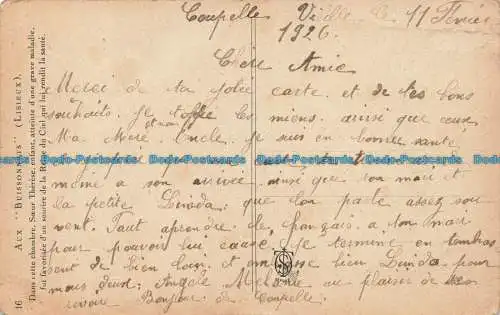 Coupelle Vieille le 11 Février
1926
Chère Amie
Merci de ta jolie carte et de tes bons
souhaits. Je t'offre les miens ainsi que ceux
et mon
Ma Mère Oncle. Je suis en bonne santé
a son arrivée ainsi que son mari et
la petite Linda. que l'on parle assez sou
vent. Faut aprendre le français a ton mari
pour pouvoir lui causé. Je termine en tembras
sent de bien loin. et embrasse bien Linda pour
mois deux. Angèle au plaisir de
revoire Bonjour de Coupelle.
16 AUX "BUISSONNETS" (LISIEUX).
Dans cette chambre, Sœur Thérèse, enfant, atteinte d'une grave maladie,
fut favorisée d'un sourire de la Reine du Ciel qui lui rendit la santé.
www.Bode-Postcards.com
www.Bode-Postcards.com
www.Bode-Postcards.com